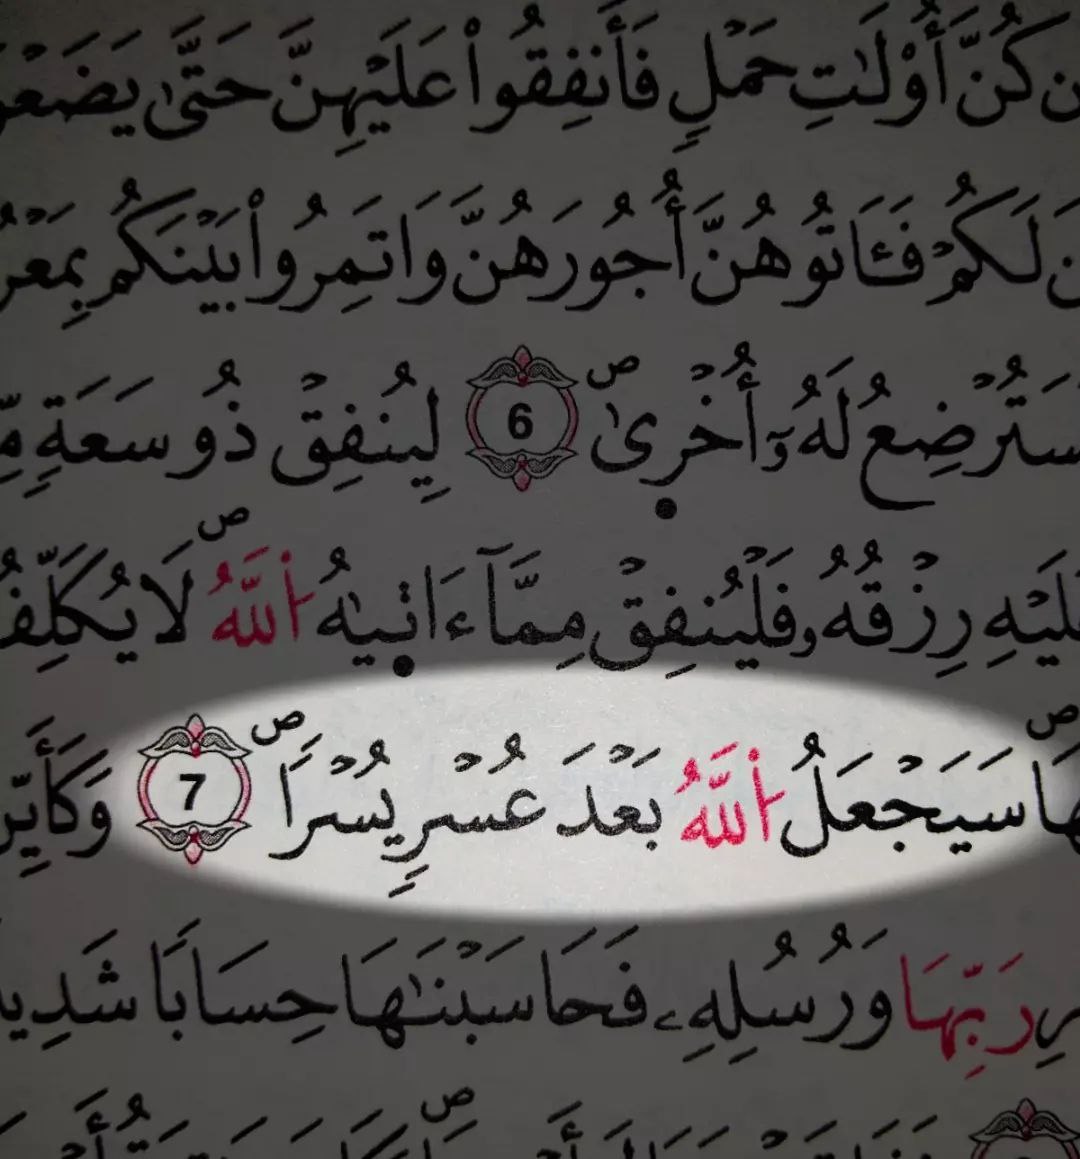 ن كُنَّ أُوْلَٰتِ حَمْلٍ فَأَنفِقُواْ عَلَيْهِنَّ حَتَّىٰ يَضَعْ
نَ لَكُمْ فَـَٔاتُوهُنَّ أُجُورَهُنَّ وَاتَمِرُواْ بَيْنَكُم بِمَعْرُ
سَتُرْضِعُ لَهُۥٓ أُخْرَىٰ ۖ 6 لِيُنفِقْ ذُو سَعَةٍ مِّ
لَيْهِ رِزْقُهُۥ فَلْيُنفِقْ مِمَّآ ءَاتَىٰهُ اُ۬للَّهُ ۖ لَا يُكَلِّفُ
هَا ۖ سَيَجْعَلُ اُ۬للَّهُ بَعْدَ عُسْرٍ يُسْرًا ۖ 7 وَكَأَيِّن
رِ رَبِّهَا وَرُسُلِهِۦ فَحَاسَبْنَٰهَا حِسَابًا شَدِيد